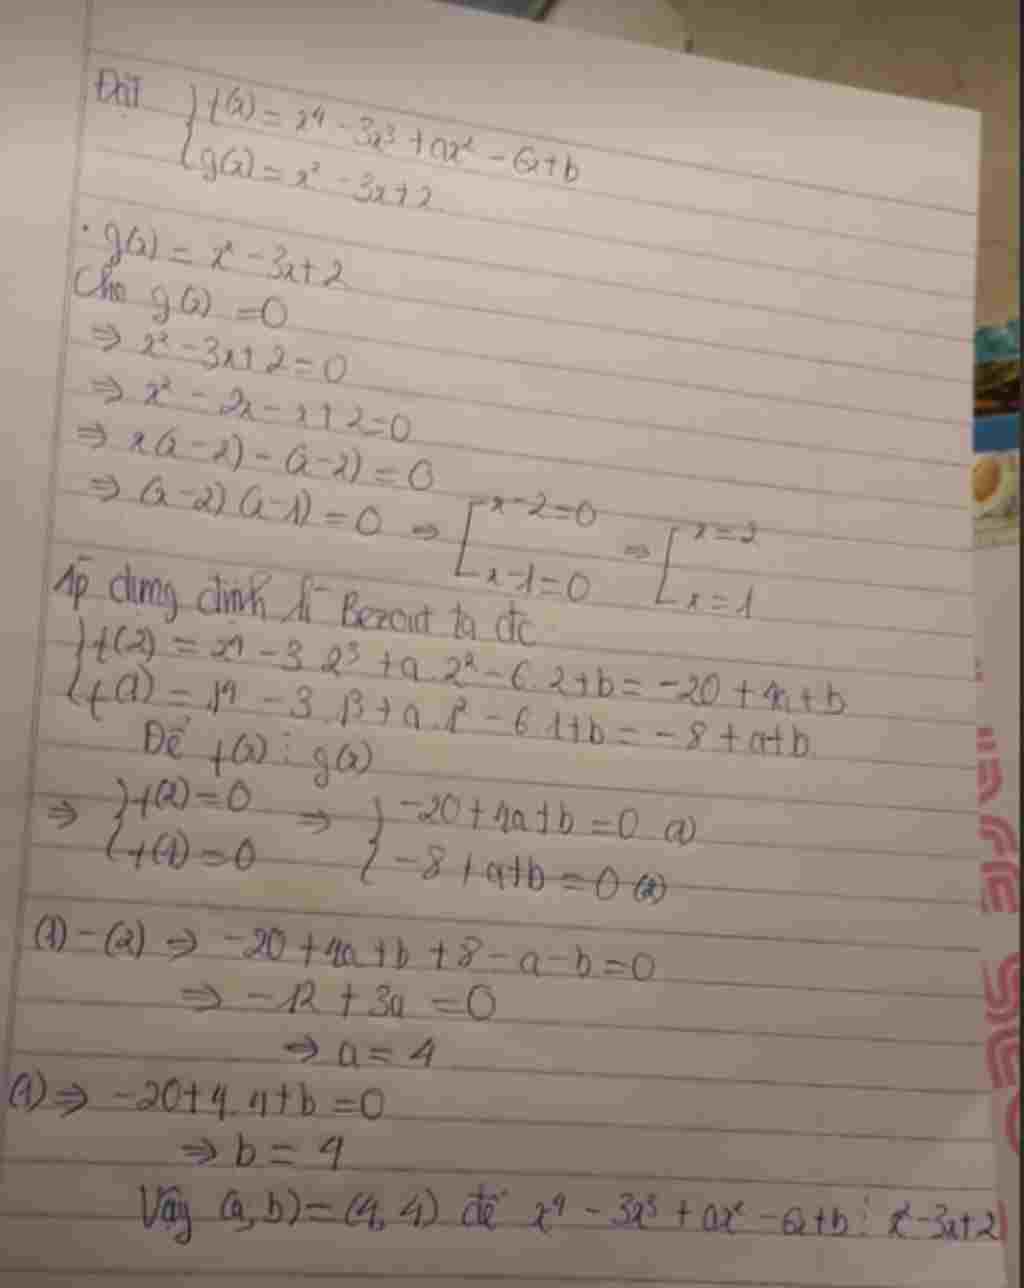 Đặt { f(x) = x⁴ - 3x³ + ax² - 6x + b
{ g(x) = x² - 3x + 2
• g(x) = x² - 3x + 2
Cho g(x) = 0
⇒ x² - 3x + 2 = 0
⇒ x² - 2x - x + 2 = 0
⇒ x(x - 2) - (x - 2) = 0
⇒ (x - 2)(x - 1) = 0 ⇒ [ x - 2 = 0 ⇒ [ x = 2
[ x - 1 = 0 [ x = 1
Áp dụng định lí Bezout ta đc
{ f(2) = 2⁴ - 3.2³ + a.2² - 6.2 + b = -20 + 4a + b
{ f(1) = 1⁴ - 3.1³ + a.1² - 6.1 + b = -8 + a + b
Để f(x) ⋮ g(x)
⇒ { f(2) = 0 ⇒ { -20 + 4a + b = 0 (1)
{ f(1) = 0 { -8 + a + b = 0 (2)
(1) - (2) ⇒ -20 + 4a + b + 8 - a - b = 0
⇒ -12 + 3a = 0
⇒ a = 4
(1) ⇒ -20 + 4.4 + b = 0
⇒ b = 4
Vậy (a, b) = (4, 4) để x⁴ - 3x³ + ax² - 6x + b ⋮ x² - 3x + 2